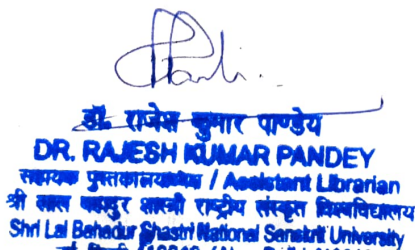 डॉ. राजेश कुमार पाण्डेय
DR. RAJESH KUMAR PANDEY
सहायक पुस्तकालयाध्यक्ष / Assistant Librarian
श्री लाल बहादुर शास्त्री राष्ट्रीय संस्कृत विश्वविद्यालय
Shri Lal Bahadur Shastri National Sanskrit University